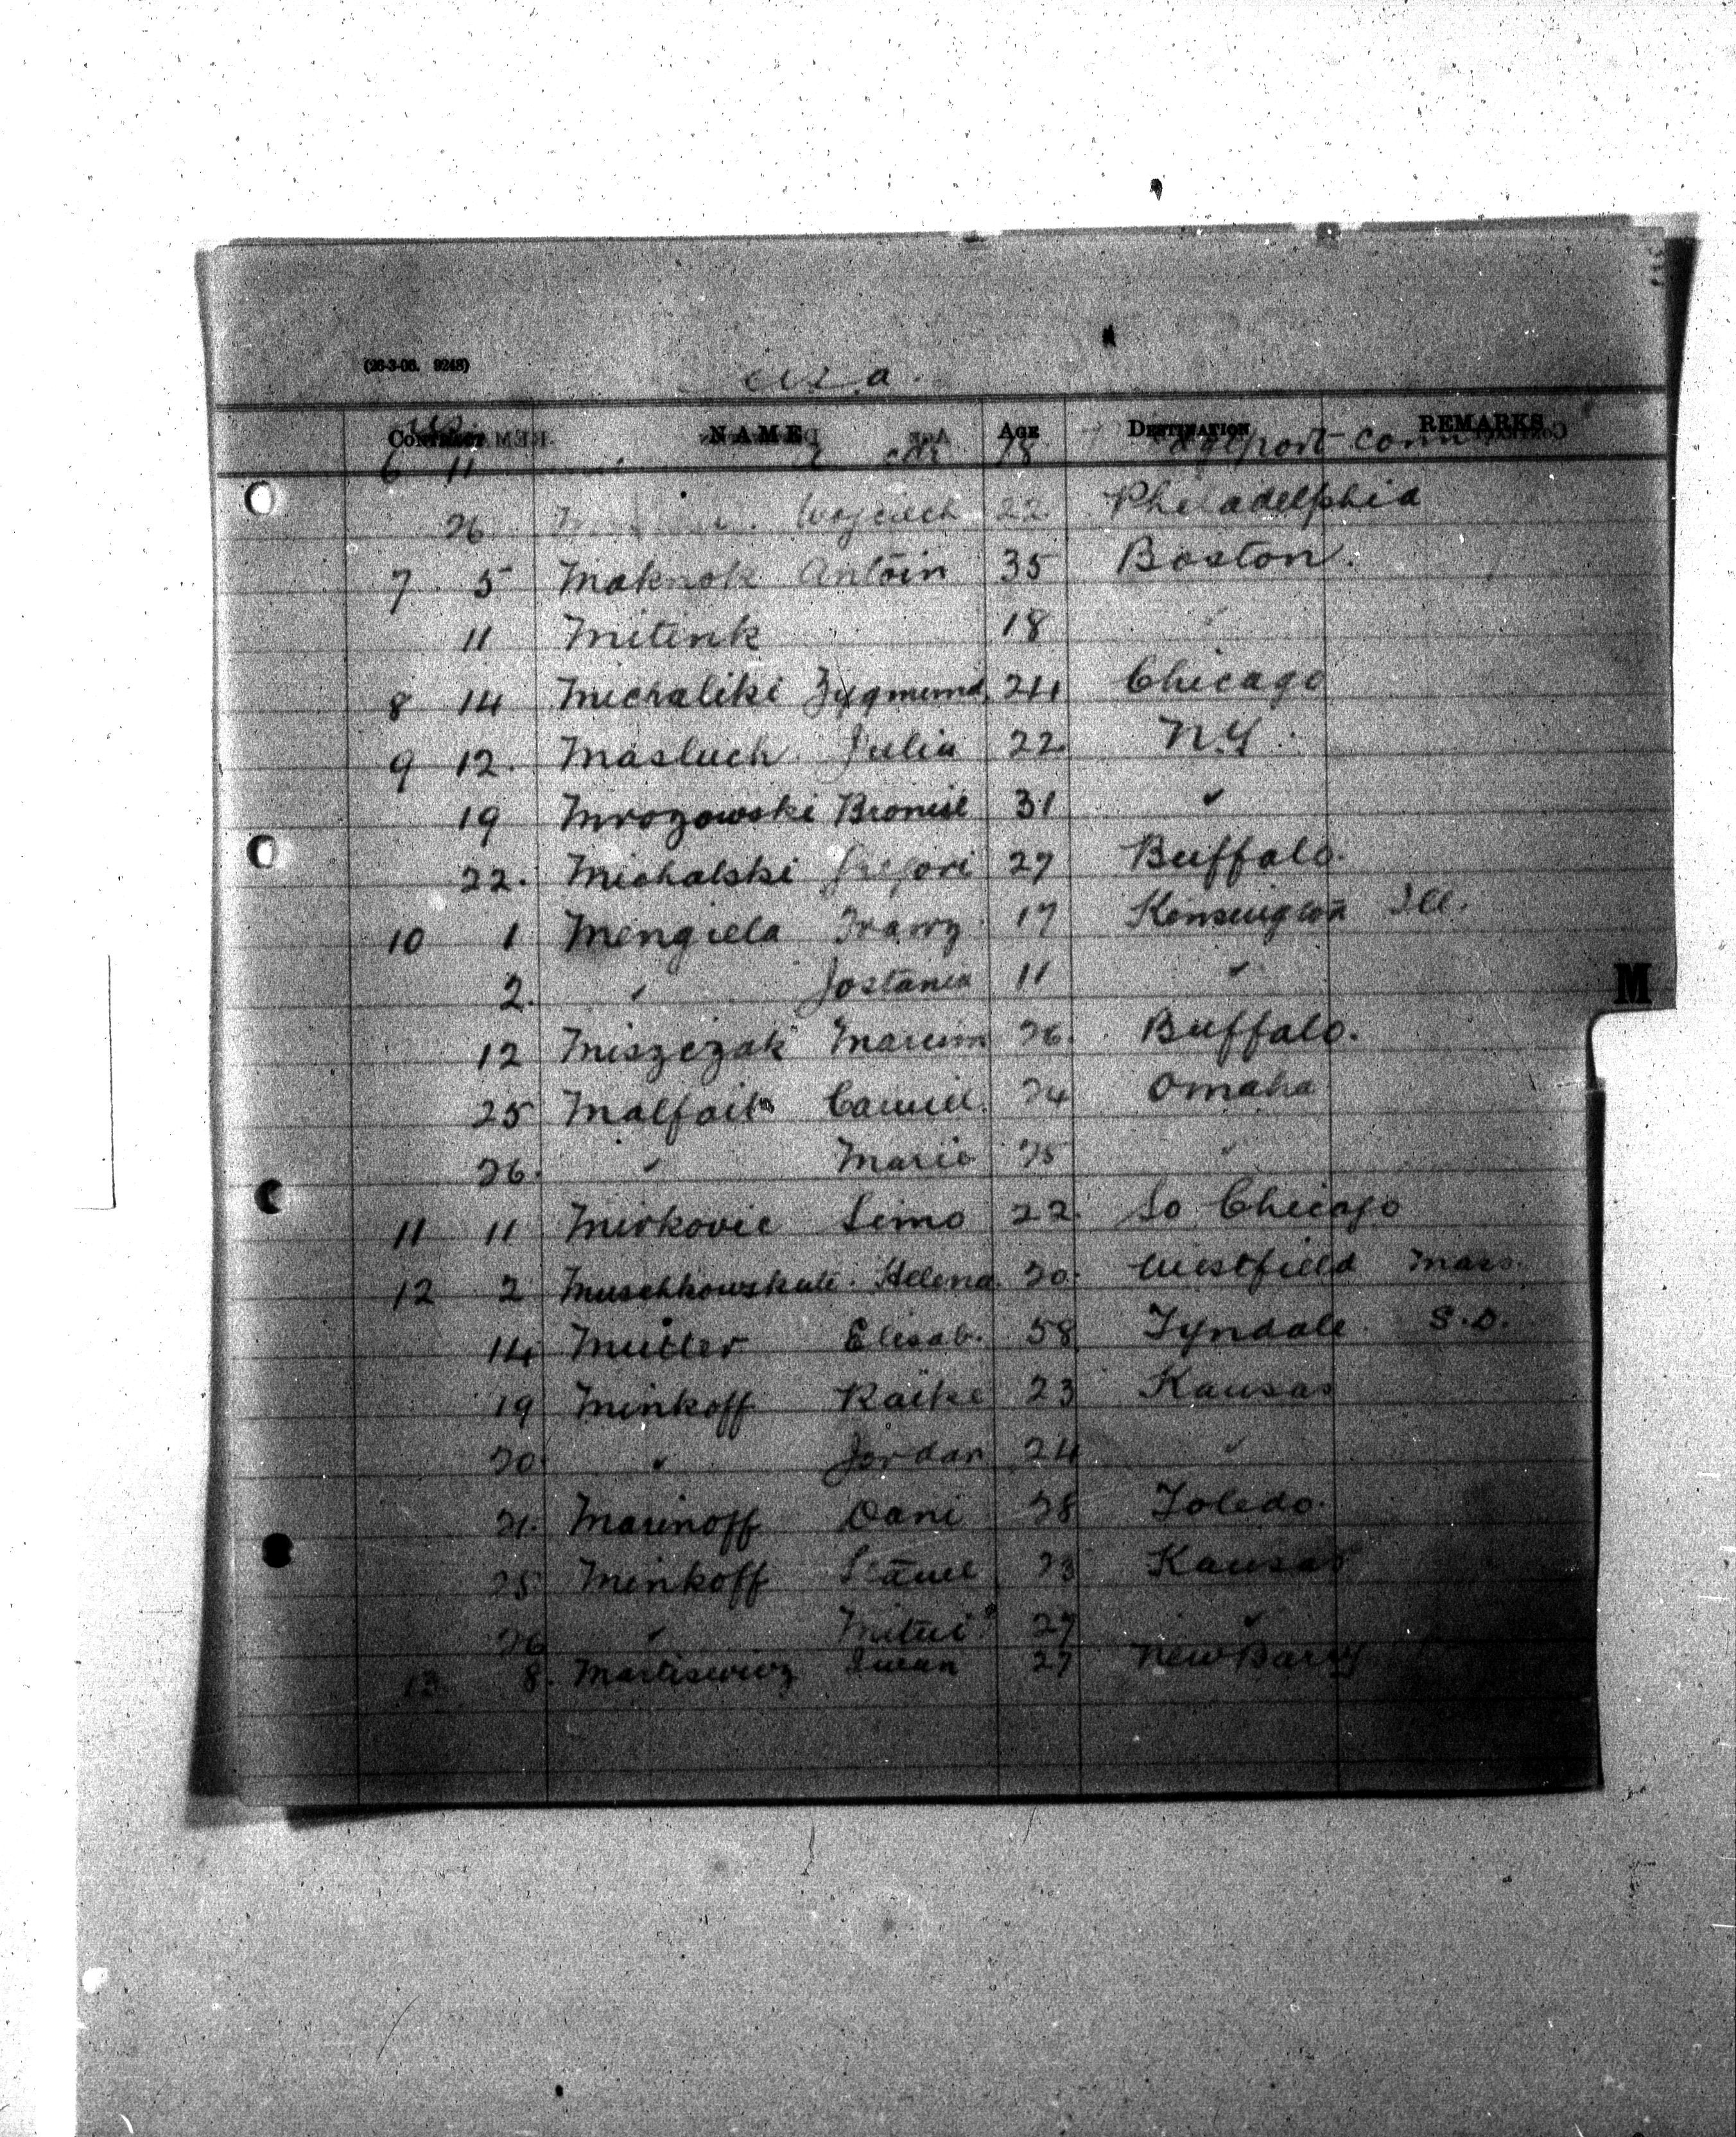 (26-3-06. 9248)
U.S.a.
CONTRACT NAME AGE DESTINATION REMARKS
6 11 18 Conn
26 Wojciech 22 Pheladelphia
7 5 Maknok Antoin 35 Boston.
11 Mitink 18 "
8 14 Michaliki Zygmund 24 Chicago
9 12. Masluch Julia 22 N.Y.
19 Mrozowski Bronisl 31 "
22. Michalski Gregori 27 Buffalo.
10 1 Mengiela Franz 17 Kensington Ill.
2. " 11 "
12 Miszczak Marcim 26. Buffalo.
M
25 Malfait Camiel 24 Omaha
26. " Marie 25 "
11 11 Mirkovic Simo 22. So Chicago
12 2 Helena. 20. Westfield Mass.
14 Mutter Elisab. 58 Tyndale S.D.
19 Minkoff Raike 23 Kansas
20. " Jordan 24 "
21. Marinoff Dani 28 Toledo.
25 Minkoff 23 Kansas
26 " 27 "
13 8. Iwan 27 New